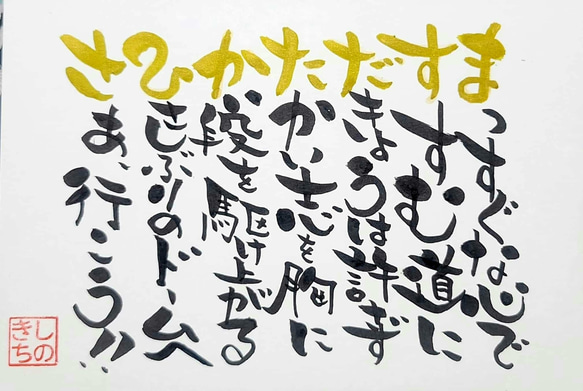 まっすぐな心で
すすむ道に
だきょうは許ず
たかい志を胸に
かい段を駆け上がる
ひさしぶりのドームへ
さあ、行こう!!
しの
きち